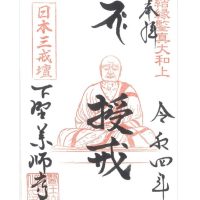 奉拝
結縁鑒真大和上
授戒
日本三戒壇
下野薬師寺
令和四年